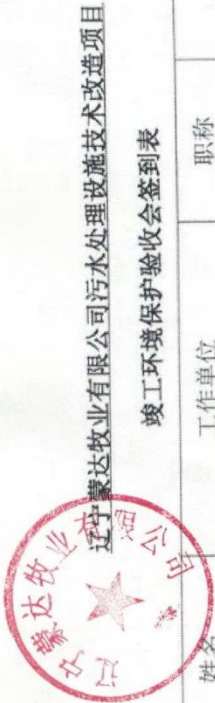 辽宁蒙达牧业有限公司污水处理设施技术改造项目
竣工环境保护验收会签到表
姓名 工作单位 职称
辽宁蒙达牧业有限公司